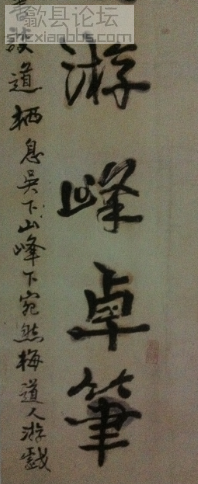 歙县论坛
shexianbbs.com
游峰卓筆
道栖息吳下山峰下宛然梅道人游戲